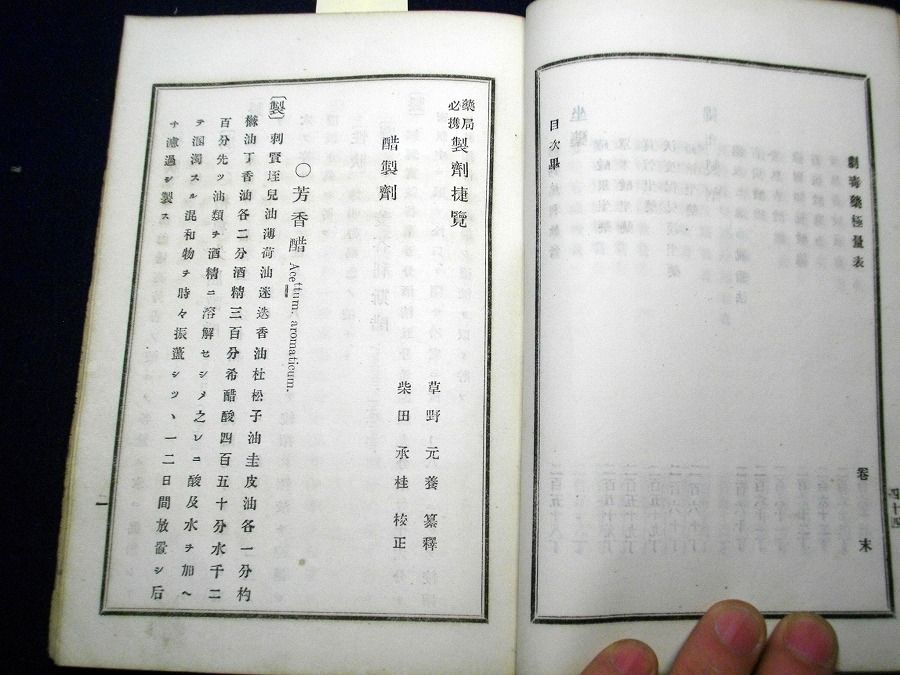 劇毒藥極量表
卷末
目次畢
四十四
藥局必携 製劑捷覽
草野元養 纂釋
柴田承桂 校正
醋製劑
○芳香醋 Acettum. aromaticum.
〔製〕刺賢垤兒油薄荷油迷迭香油杜松子油圭皮油各一分枸
櫞油丁香油各二分酒精三百分希醋酸四百五十分水千二
百分先ツ油類ヲ酒精ニ溶解セシメ之レニ酸及水ヲ加ヘ
テ溷濁スル混和物ヲ時々振盪シツヽ一二日間放置シ后
チ濾過シ製ス
一